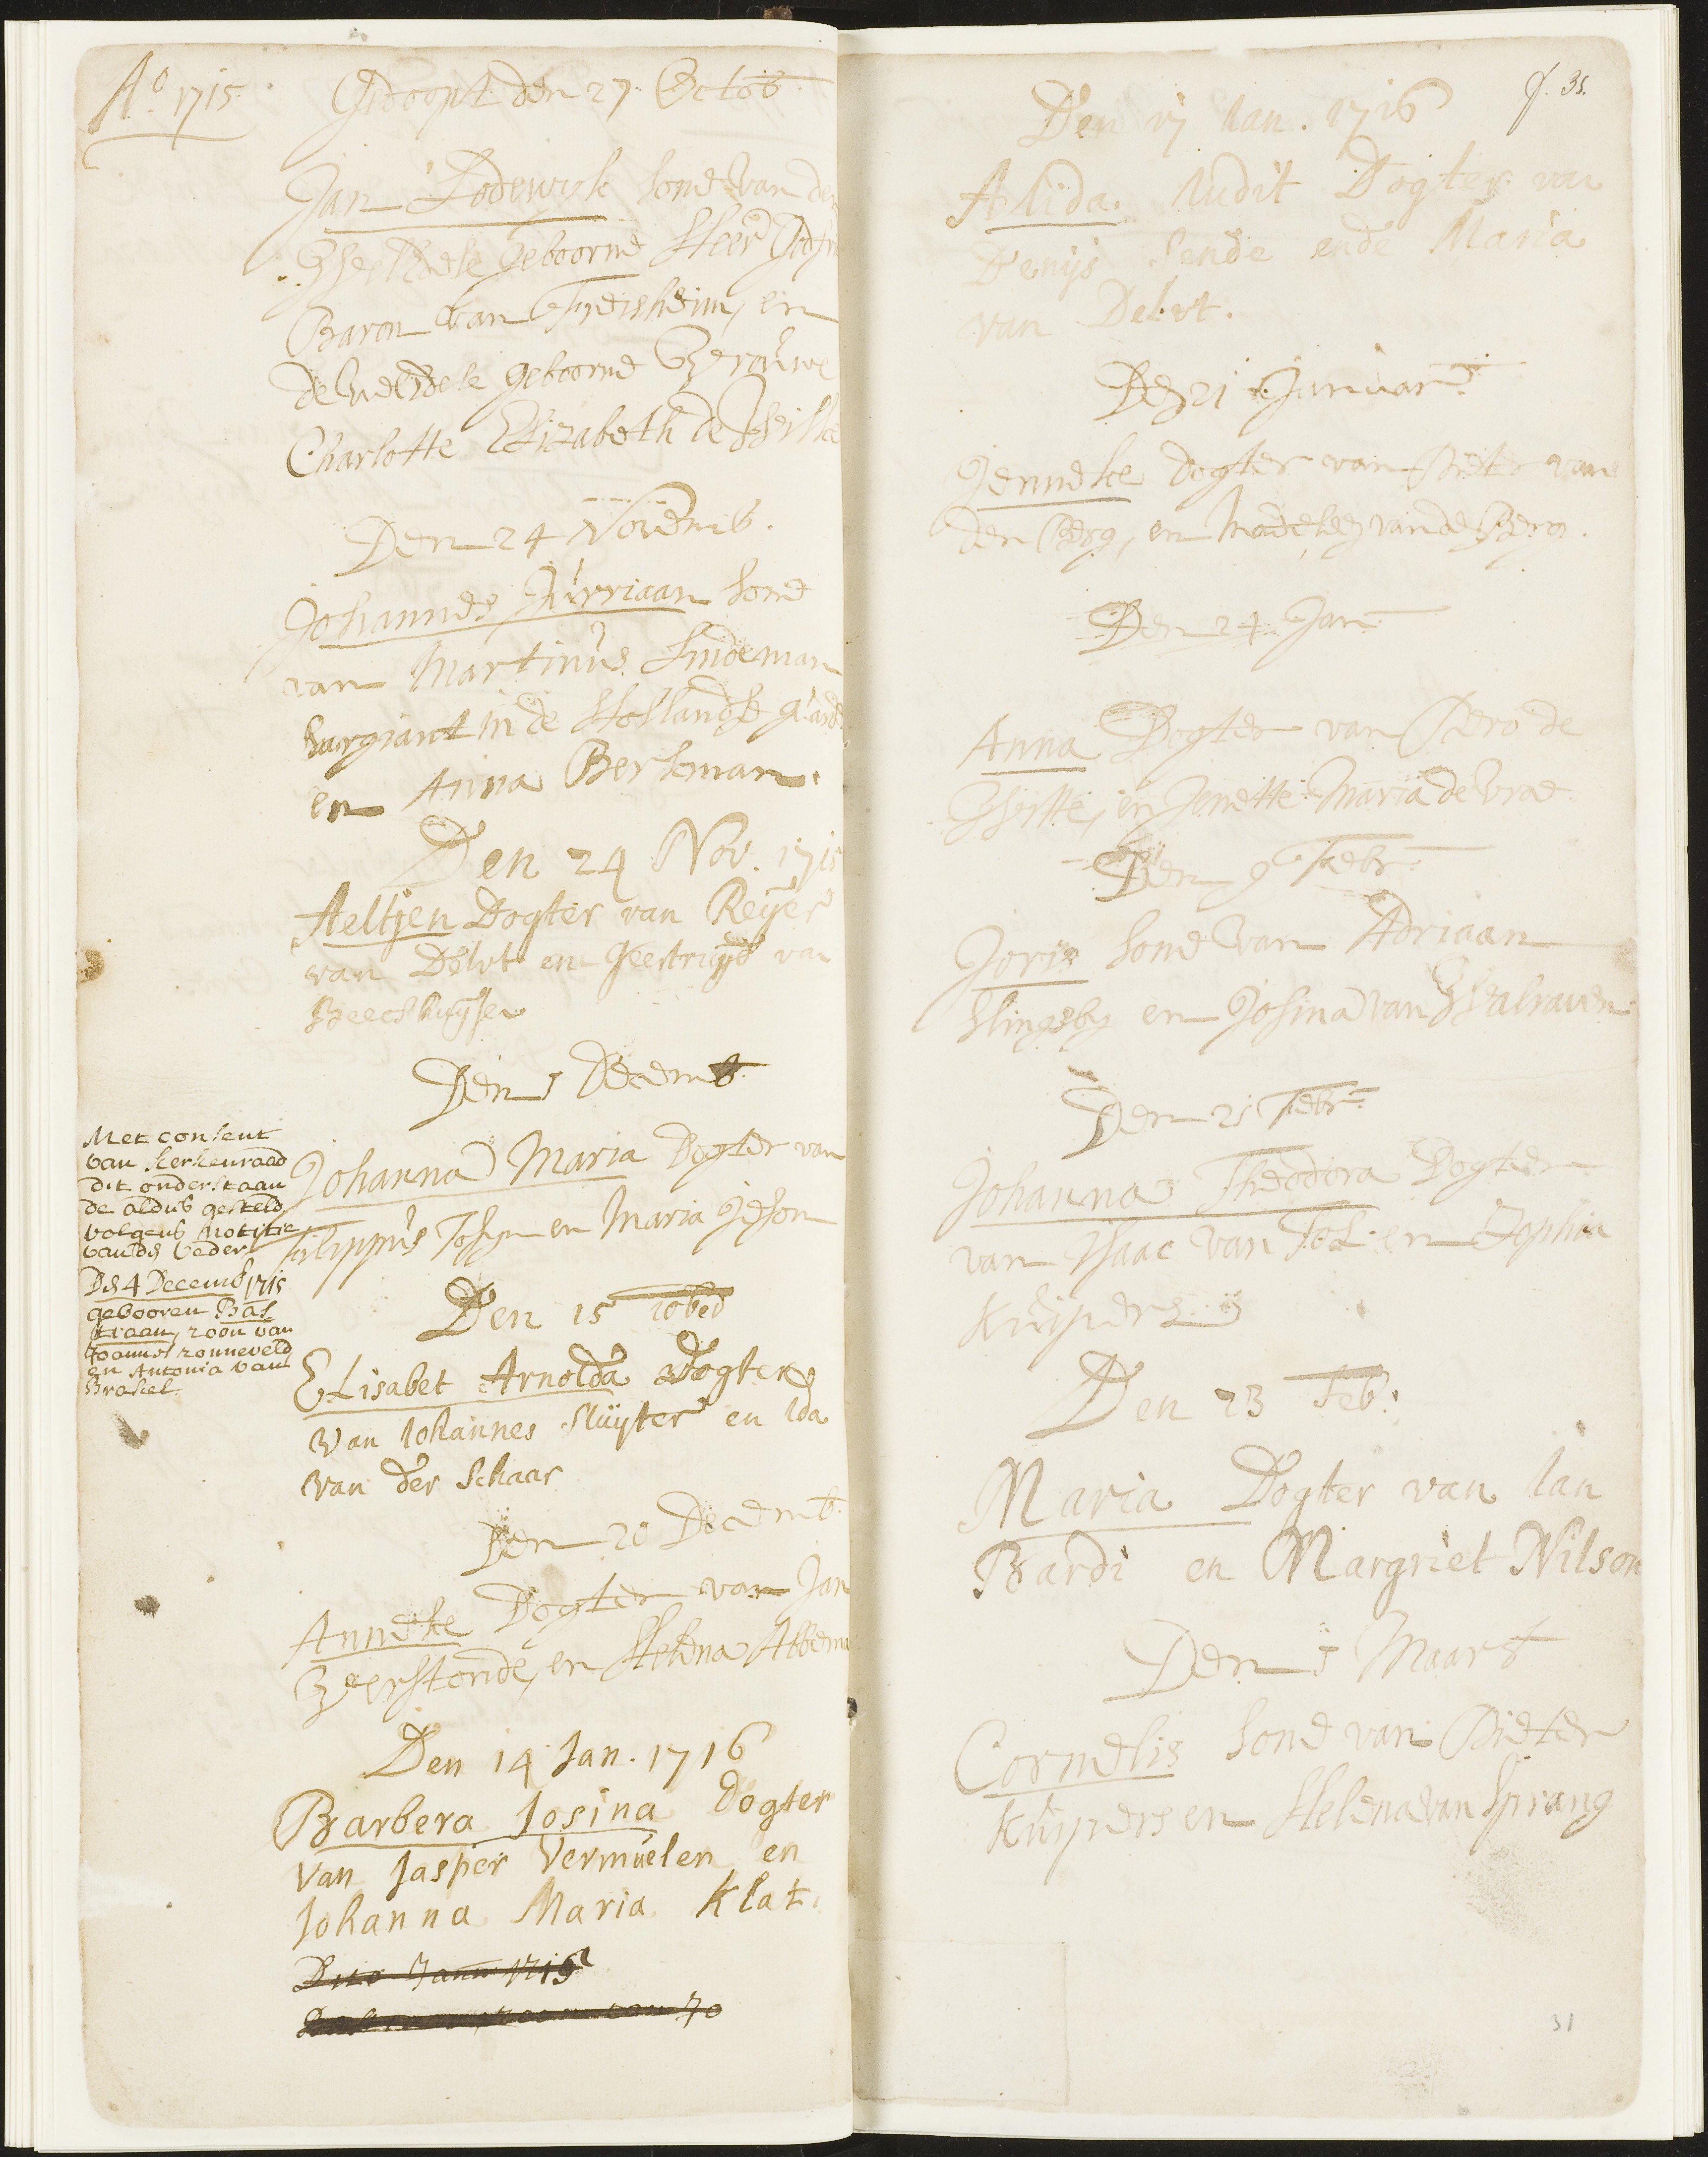 Aº 1715. Gedoopt den 27. Octob.
Jan Lodewyk sone van den
geboorne Heer
Baron van en
de geboorne Vrouwe
Charlotte Elizabeth de
Den 24 Novemb.
Johannes Jurriaan sone
van Martinus Lindeman
Sargiant in de Hollandse guarde
en Anna Berkman.
Den 24 Nov. 1715
Aeltjen Dogter van Reyer
van Delvt en Geertruyd van
Beeckhuysen
Den 5 Decemb.
Met consent
van kerkenraad
dit onderstaan
de aldus gesteld
volgens notitie
van de vader
Den 4 Decemb 1715
gebooren Bas
tiaan, zoon van
Joannes zonneveld
en Antonia van
Brakel.
Johanna Maria Dogter van
Filippus en Maria
Den 15 10bed
Elisabet Arnolda Dogter
van Iohannes Sluyter en Ida
van der Schaar
Den 20 Decemb.
Anneke Dogter van Jan
en Helena
Den 14 Jan. 1716
Barbera Iosina Dogter
van Jasper Vermuelen en
Iohanna Maria Klat.
Dito Janu 1716
f. 31.
Den 17 Ian. 1716
Alida Iudit Dogter van
Denijs Sende ende Maria
van Delvt.
Den 21 Januar
Jenneke dogter van Pieter van
den Berg, en van de Berg.
Den 24 Jan
Anna Dogter van Pero de
Witte, en Jenette Maria de
Den 9 Febr.
Joris sone van Adriaan
Slingsby en Josina van Walraven
Den 21 Febr.
Johanna Theodora Dogter
van Isaac van Tol en Sophia
Kuijpers
Den 23 Feb.
Maria Dogter van Ian
Bardi en Margriet Nilson
Den 5 Maart
Cornelis sone van Pieter
Kuijpers en Helena van Sprang
31